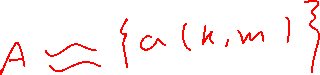 A ≈ {a(k,m)}